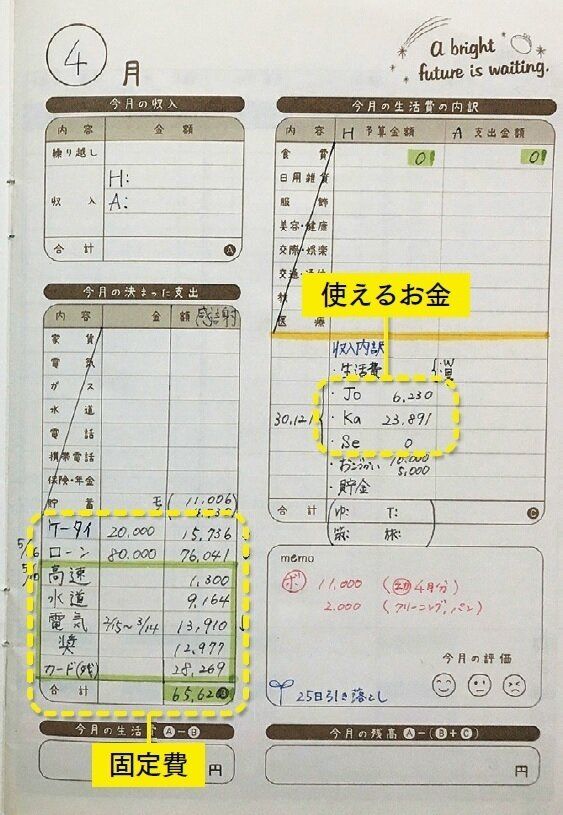 4月
A bright
future is waiting.
今月の収入
内容 金額
繰り越し
H:
収入 A:
合計 A
今月の決まった支出
内容 金額 感謝
家賃
電気
ガス
水道
電話
携帯電話
保険・年金
貯蓄 (11,006
ケータイ 20,000 15,736
ローン 80,000 76,041
高速 1,300
水道 9,164
電気 2/15〜3/14 13,910
奨 12,977
カード(残) 28,269
合計 65,620
固定費
今月の生活費 A−B
円
今月の生活費の内訳
内容 H 予算金額 A 支出金額
食費 0 0
日用雑貨
服飾
美容・健康
交際・娯楽
交通・通信
医療
使えるお金
収入内訳
・生活費
30,121
・Jo 6,230
・Ka 23,891
・Se 0
・おこづかい 10,000
5,000
・貯金
合計 ゆ: T: C
memo
ボ 11,000 (4月分)
2,000 (クリーニング,パン)
今月の評価
25日引き落とし
今月の残高 A−(B+C)
円